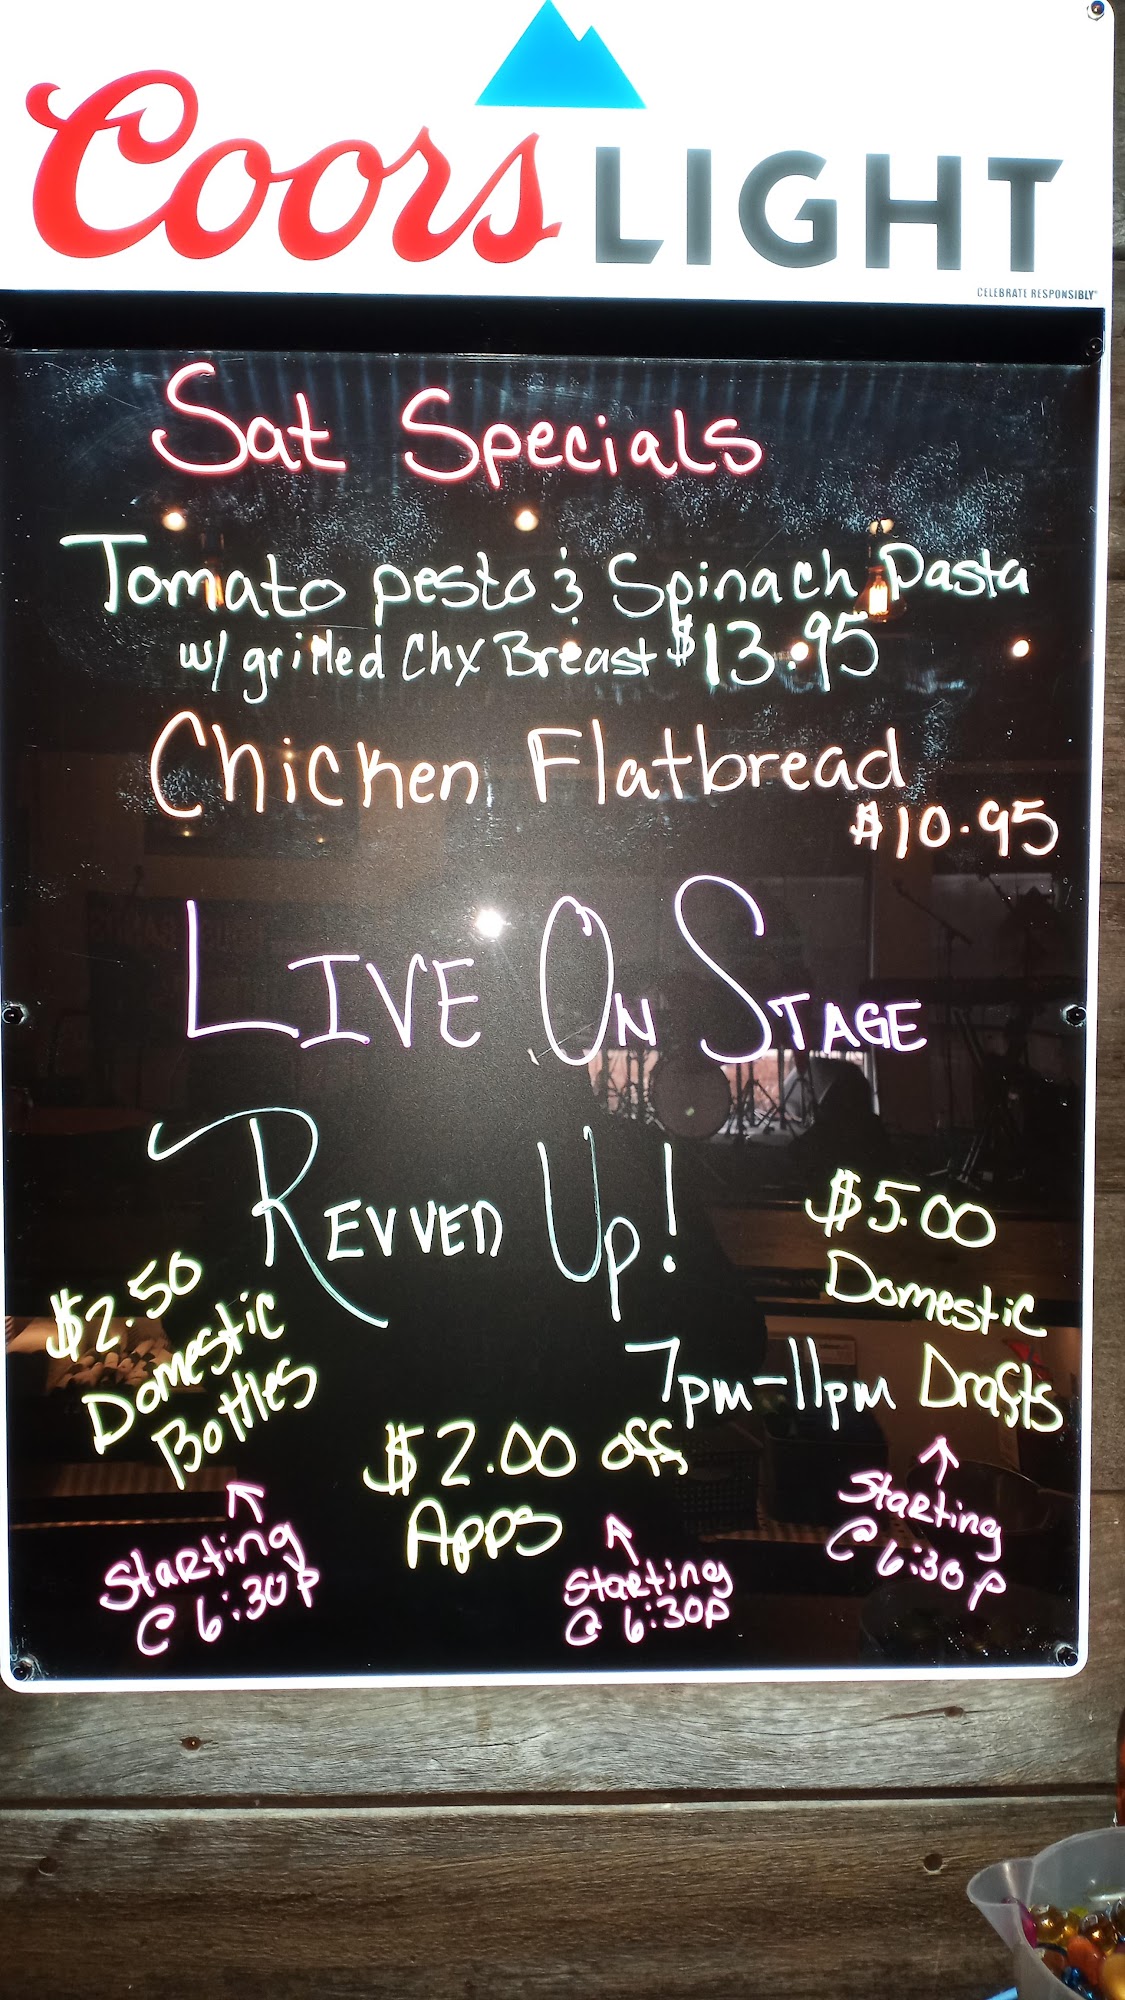 Coors LIGHT
CELEBRATE RESPONSIBLY®
Sat Specials
Tomato pesto & Spinach Pasta
w/ grilled Chx Breast $13.95
Chicken Flatbread
$10.95
LIVE ON STAGE
REVVED UP!
7pm-11pm
$2.50
Domestic
Bottles
Starting
@ 6:30P
$2.00 off
Apps
Starting
@ 6:30P
$5.00
Domestic
Drafts
Starting
@ 6:30P